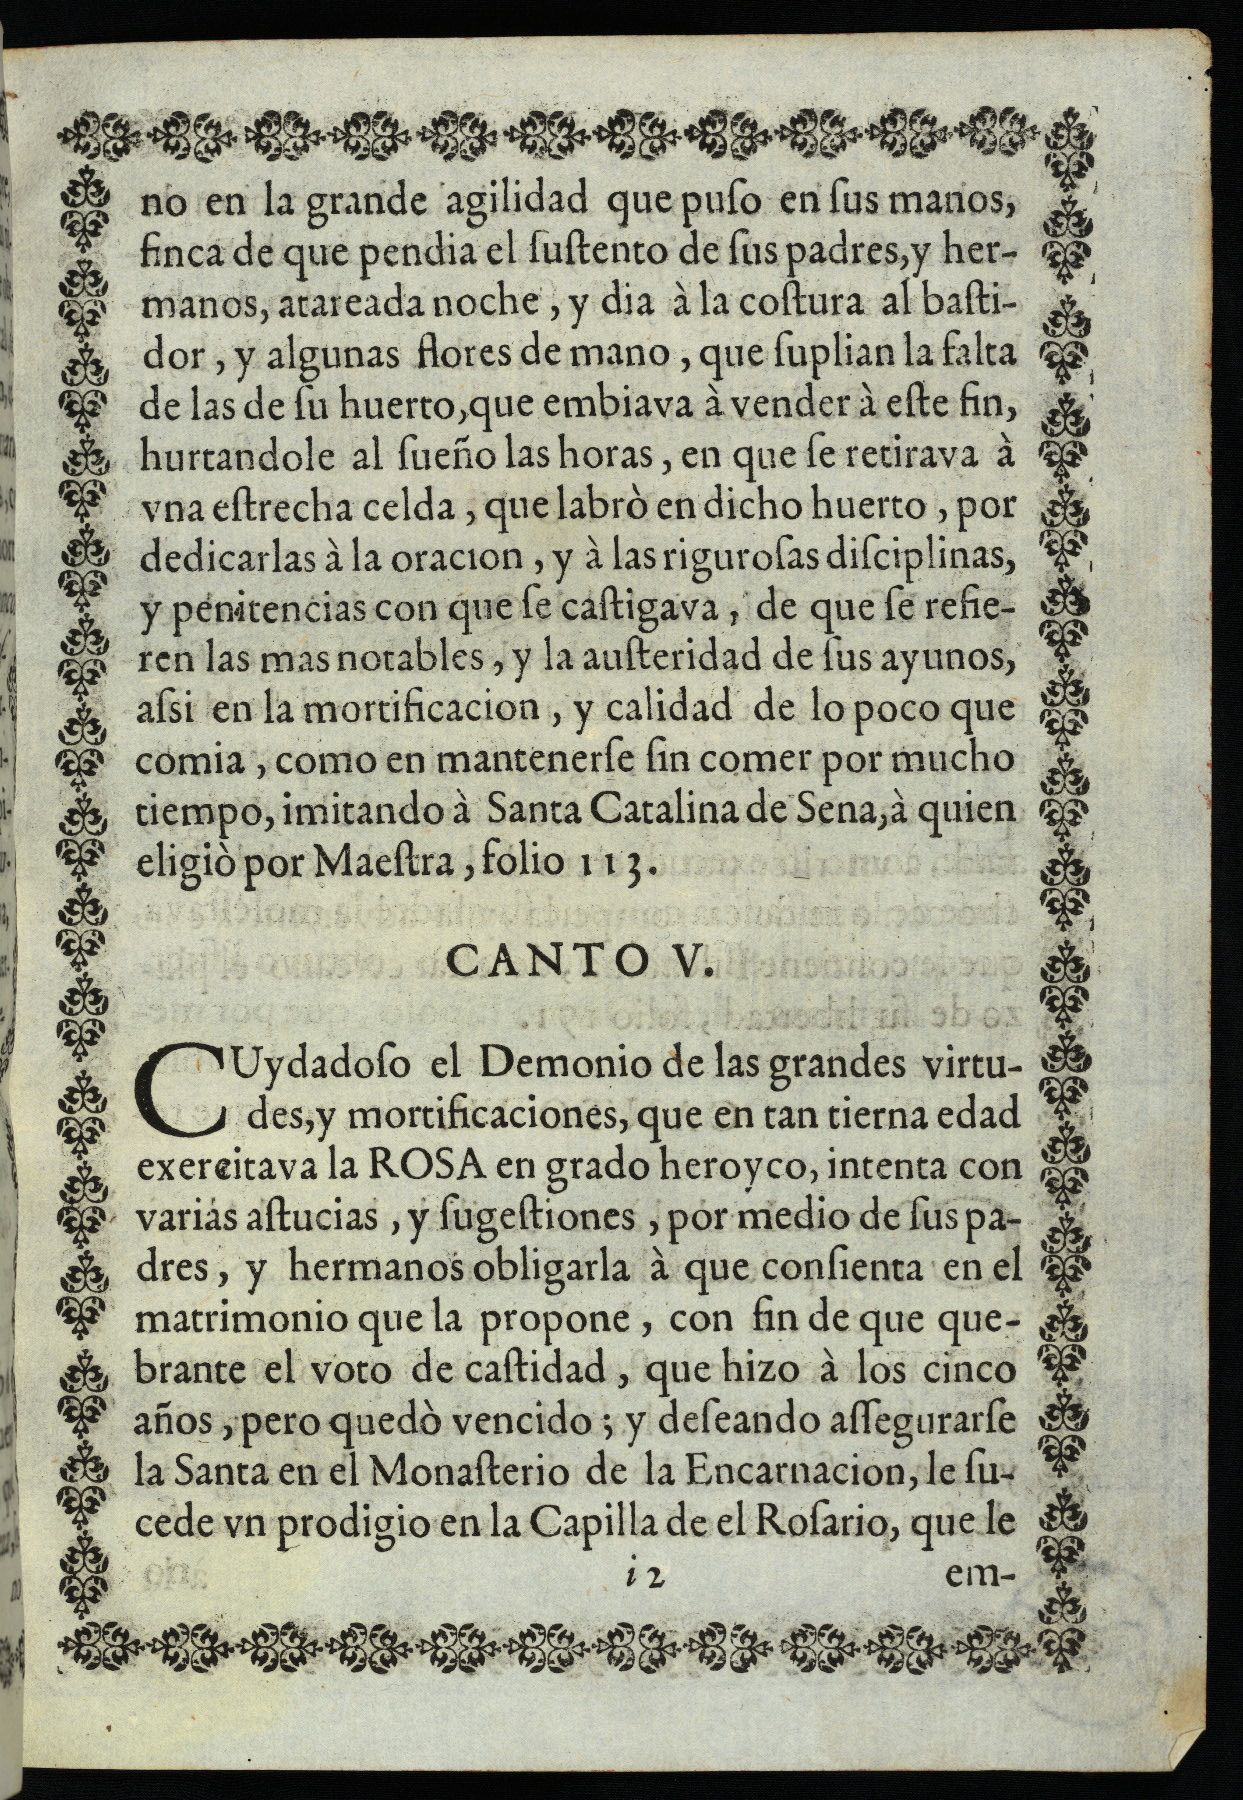 no en la grande agilidad que puſo en ſus manos,
finca de que pendia el ſuſtento de ſus padres,y her-
manos, atareada noche , y dia à la coſtura al baſti-
dor , y algunas flores de mano , que ſuplian la falta
de las de ſu huerto,que embiava à vender à eſte fin,
hurtandole al ſueño las horas , en que ſe retirava à
vna eſtrecha celda , que labrò en dicho huerto , por
dedicarlas à la oracion , y à las riguroſas diſciplinas,
y penitencias con que ſe caſtigava , de que ſe refie-
ren las mas notables , y la auſteridad de ſus ayunos,
aſsi en la mortificacion , y calidad de lo poco que
comia , como en mantenerſe ſin comer por mucho
tiempo, imitando à Santa Catalina de Sena,à quien
eligiò por Maeſtra , folio 113.
CANTO V.
CUydadoſo el Demonio de las grandes virtu-
des,y mortificaciones, que en tan tierna edad
exercitava la ROSA en grado heroyco, intenta con
varias aſtucias , y ſugeſtiones , por medio de ſus pa-
dres , y hermanos obligarla à que conſienta en el
matrimonio que la propone , con fin de que que-
brante el voto de caſtidad , que hizo à los cinco
años , pero quedò vencido ; y deſeando aſſegurarſe
la Santa en el Monaſterio de la Encarnacion, le ſu-
cede vn prodigio en la Capilla de el Roſario, que le
i2 em-